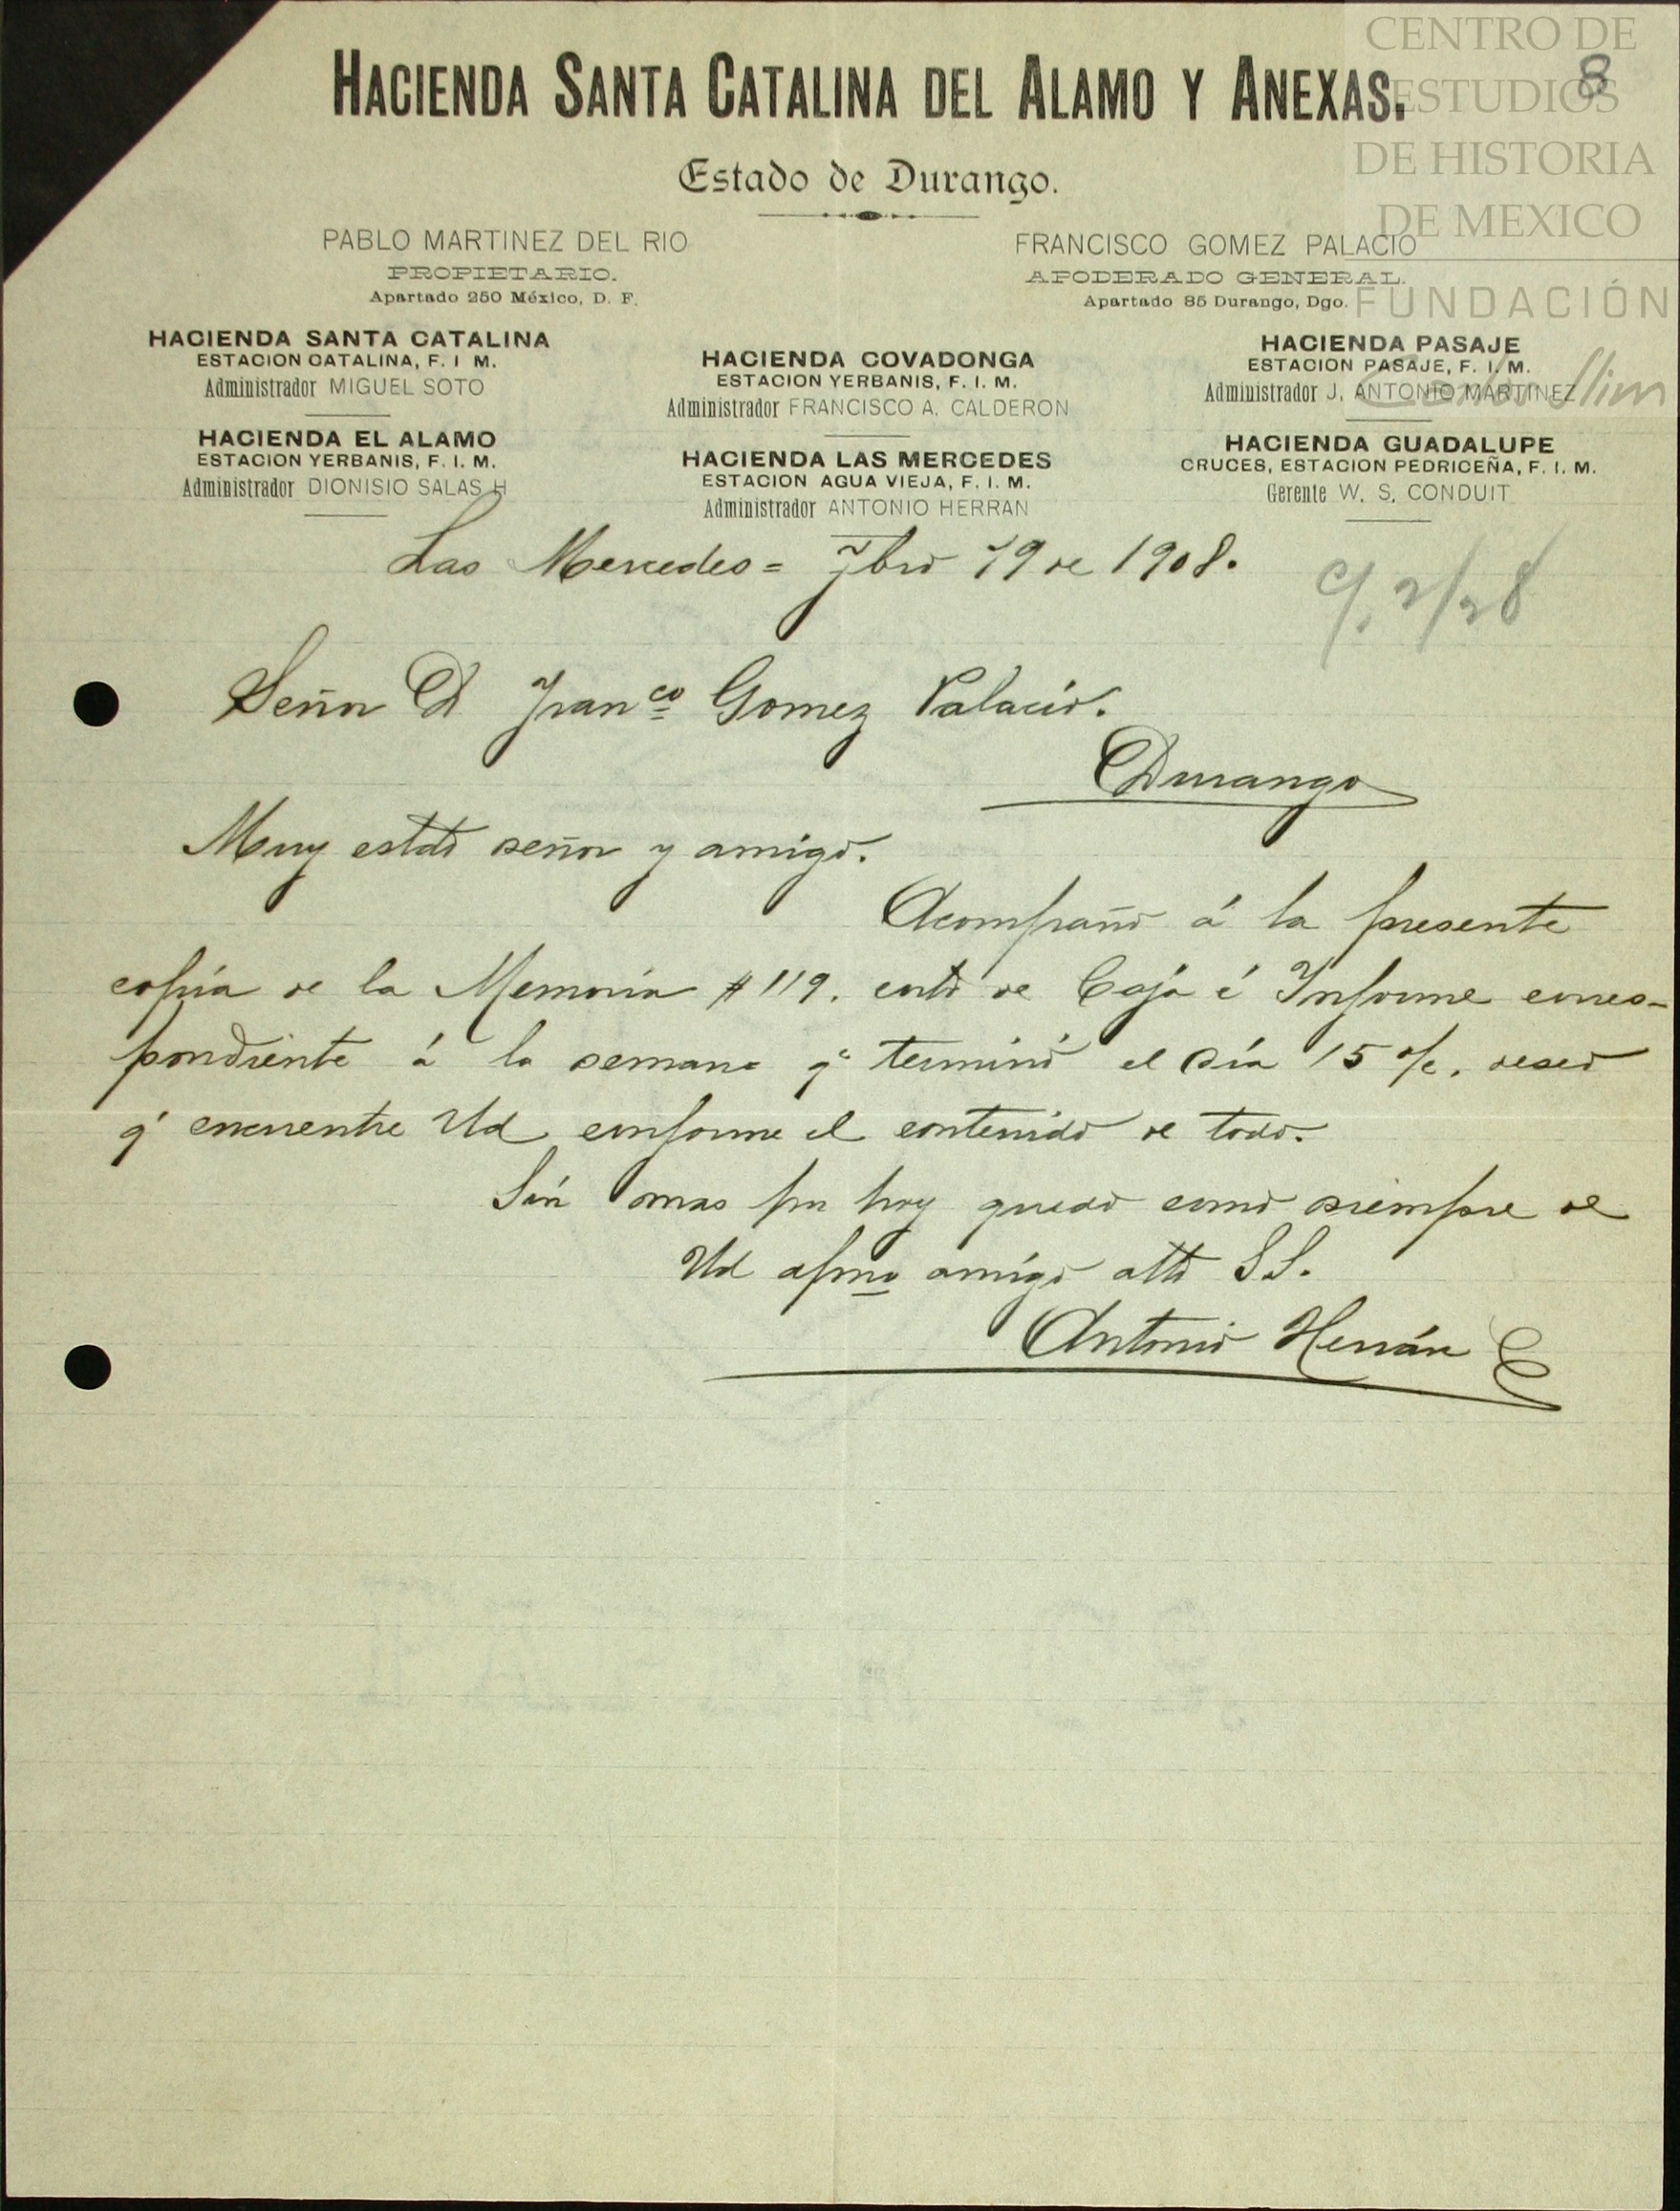 CENTRO DE
ESTUDIOS
DE HISTORIA
DE MEXICO
FUNDACIÓN
Carlos Slim
8
HACIENDA SANTA CATALINA DEL ALAMO Y ANEXAS.
Estado de Durango.
PABLO MARTINEZ DEL RIO
PROPIETARIO.
Apartado 250 México, D. F.
FRANCISCO GOMEZ PALACIO
APODERADO GENERAL.
Apartado 85 Durango, Dgo.
HACIENDA SANTA CATALINA
ESTACION CATALINA, F. I M.
Administrador MIGUEL SOTO
HACIENDA EL ALAMO
ESTACION YERBANIS, F. I. M.
Administrador DIONISIO SALAS H
HACIENDA COVADONGA
ESTACION YERBANIS, F. I. M.
Administrador FRANCISCO A. CALDERON
HACIENDA LAS MERCEDES
ESTACION AGUA VIEJA, F. I. M.
Administrador ANTONIO HERRAN
HACIENDA PASAJE
ESTACION PASAJE, F. I. M.
Administrador J. ANTONIO MARTINEZ
HACIENDA GUADALUPE
CRUCES, ESTACION PEDRICEÑA, F. I. M.
Gerente W. S. CONDUIT
Las Mercedes = 19 de 1908.
Señor D Franco Gomez Palacio.
Durango
Muy estdo señor y amigo.
Acompaño á la presente
copia de la Memoria # 119. corte de Caja é Informe corres-
pondiente á la semana q' terminó el día 15 deseo
q' encuentre Ud conforme el contenido de todo.
Sin mas por hoy quedo como siempre de
Ud afmo amigo atto S S.
Antonio Herrán